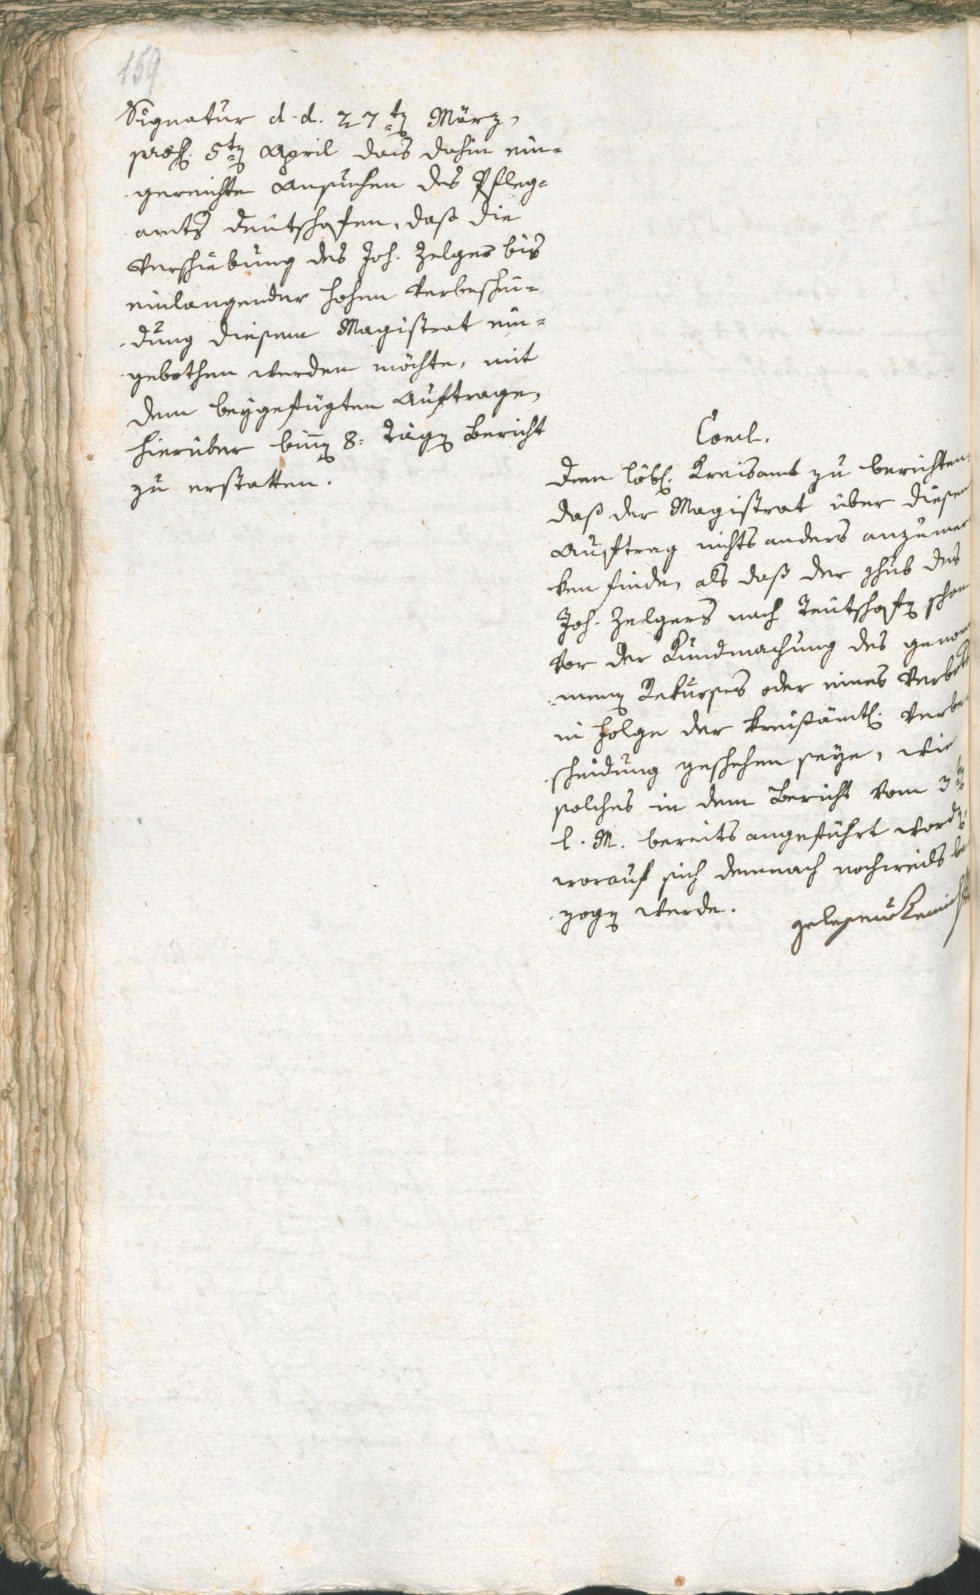 159
Signatur d. d. 27ten März,
præs. 5ten April das dahin ein-
gereichte Ansuchen des Pfleg-
amts Deutschofen, daß die
Verschiebung des Joh. Zelger bis
einlangender hohen Verbeschei-
dung diesem Magistrat ein-
gebothen werden möchte, mit
dem beygefügten Auftrage,
hierüber binen 8. Tägen Bericht
zu erstatten.
Concl.
Dem löbl. Kreisamt zu berichten
daß der Magistrat über diesen
Auftrag nichts anders anzumer
ken finde, als daß der Schub des
Joh. Zelgers nach Teutschofen schon
vor der Kundmachung des genom
menen Rekurses oder eines Verboths
in Folge der kreisämtl. Verbe
scheidung geschehen seye, wie
solches in dem Bericht vom 3ten
l. M. bereits angeführt worden
worauf sich demnach nochmals be
zogen werde.
gelesen